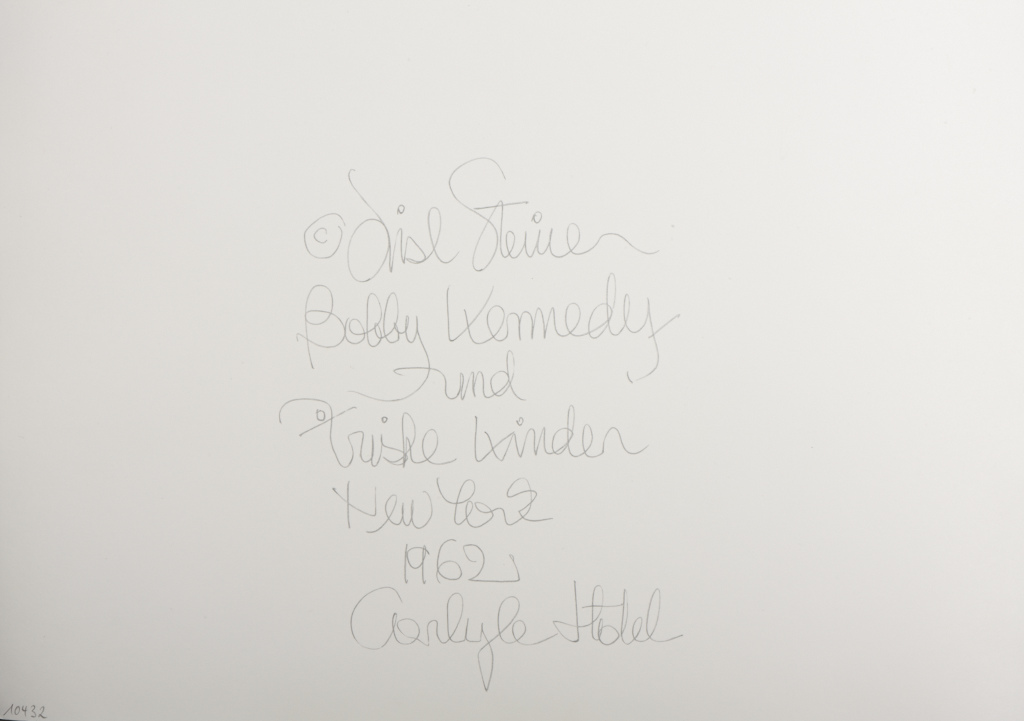 © Lisl Steiner
Bobby Kennedy
Fund
Triske Kinder
New York
1962
Carlyle Hotel
10432